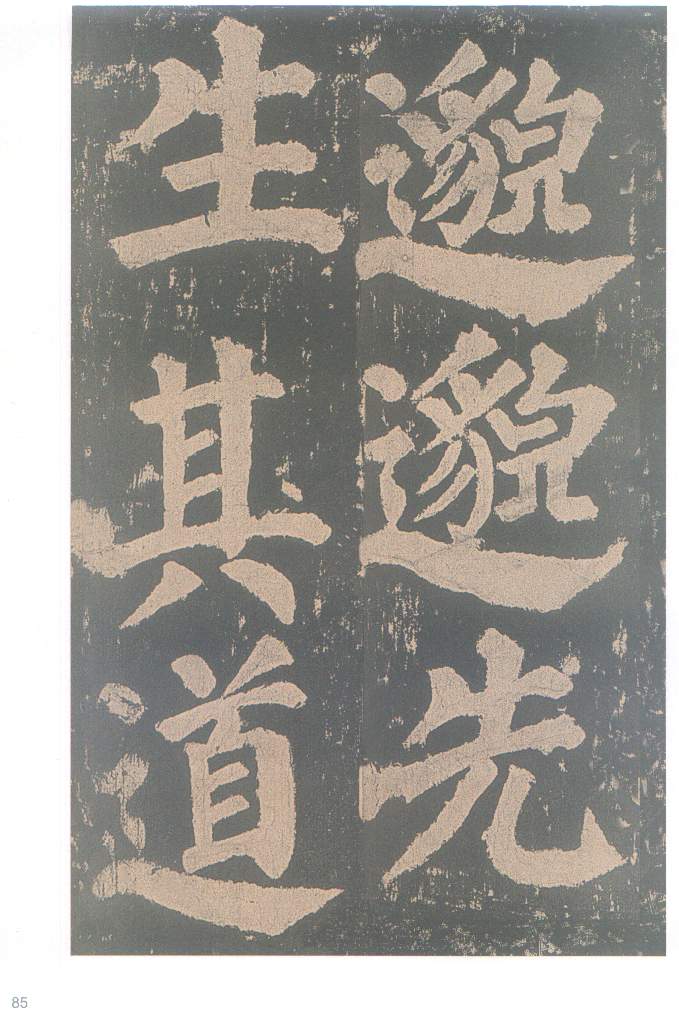 邈邈先
生其道
85